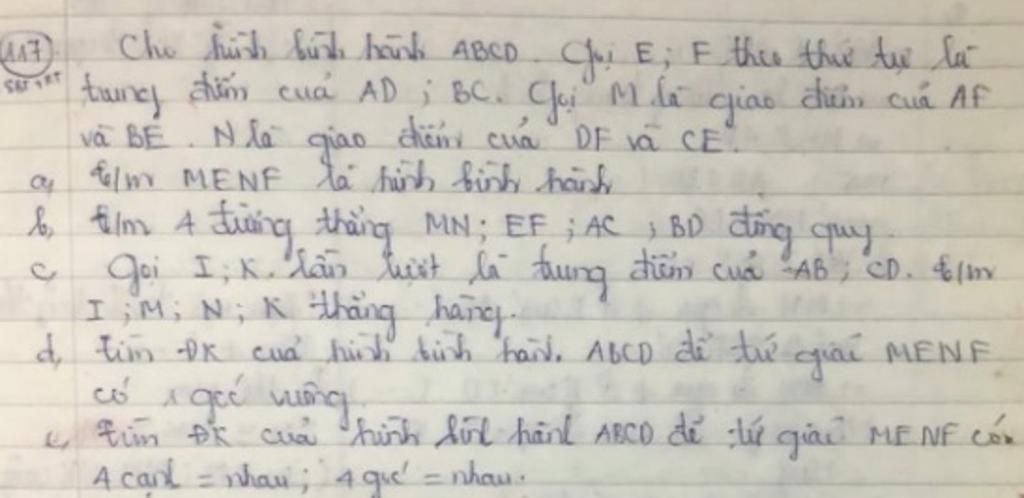 117 Cho hình bình hành ABCD. Gọi E; F theo thứ tự là
trung điểm của AD; BC. Gọi M là giao điểm của AF
và BE. N là giao điểm của DF và CE.
a, c/m MENF là hình bình hành
b, c/m 4 đường thẳng MN; EF; AC; BD đồng quy.
c, Gọi I; K lần lượt là trung điểm của AB; CD. c/m
I; M; N; K thẳng hàng.
d, tìm ĐK của hình bình hành ABCD để tứ giác MENF
có 1 góc vuông.
e, tìm ĐK của hình bình hành ABCD để tứ giác MENF có
4 cạnh = nhau; 4 góc = nhau.